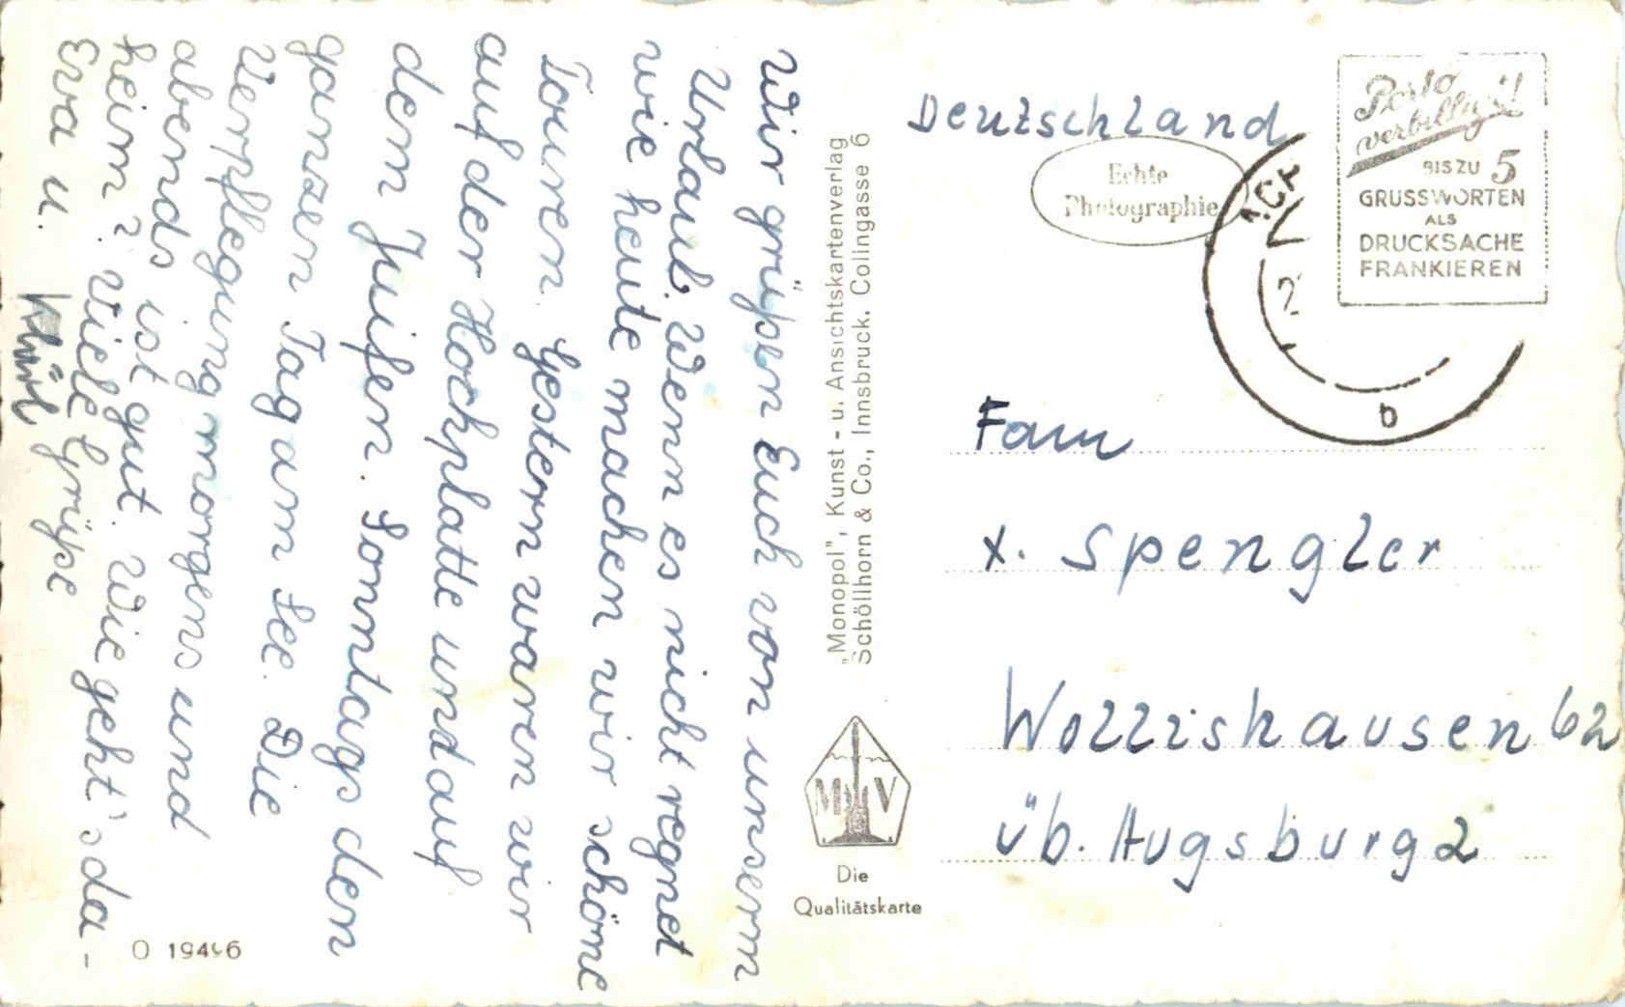 Wir grüßen Euch von unserm
Urlaub. Wenn es nicht regnet
wie heute machen wir schöne
Touren. Gestern waren wir
auf der Hochplatte und auf
dem Juifen. Sonntags den
ganzen Tag am See. Die
Verpflegung morgens und
abends ist gut. Wie geht's da-
heim? Viele Grüße
Eva u.
"Monopol", Kunst- u. Ansichtskartenverlag
Schöllhorn & Co., Innsbruck. Colingasse 6
MKV
Die
Qualitätskarte
O 19446
Deutschland
Echte
Photographie
Porto
verbilligt!
BIS ZU 5
GRUSSWORTEN
ALS
DRUCKSACHE
FRANKIEREN
b
Fam
X. Spengler
Wollishausen 62
üb. Augsburg 2